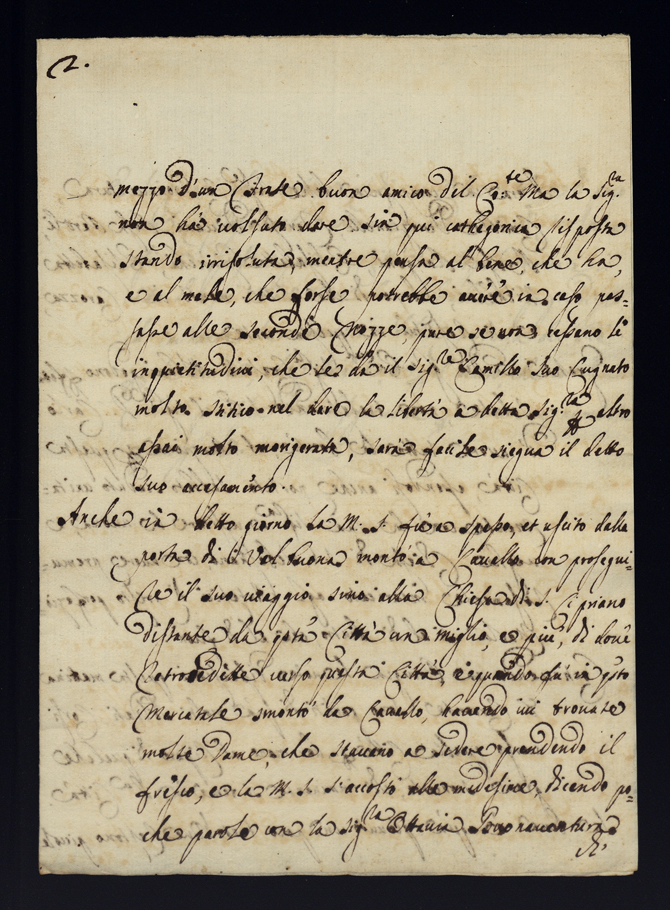 2.
mezzo d'un Frate buon amico del Co:te Ma la Sig.ra
non hà volsuto dare sin quì cathegorica risposta
stando irrisoluta, mentre pensa al bene, che hà,
e al male, che forse potrebbe avere in caso pas=
sasse alle seconde Nozze, pure se non cessano le
inquietitudini, che le dà il Sig.re Camillo suo Cugnato
molto stitico nel dare la libertà a detta Sig.ra altro
assai molto morigerata, sarà facile siegua il detto
suo accasamento.
Anche in detto giorno la M. S. fù a spasso, et uscito dalla
porta di Valbuona montò a Cavallo con prosegui=
re il suo viaggio sino alla Chiesa di S. Cipriano
distante da q:sta Città un miglio, e più, di dove
retrocedette verso questa Città, e quando fù in q:sto
Mercatale smontò da Cavallo, havendo ivi trovate
molte Dame, che stavano a sedere prendendo il
fresco, e la M. S. s'accostò alle medesime, dicendo po=
che parole con la Sig.ra Ottavia Bonaventura